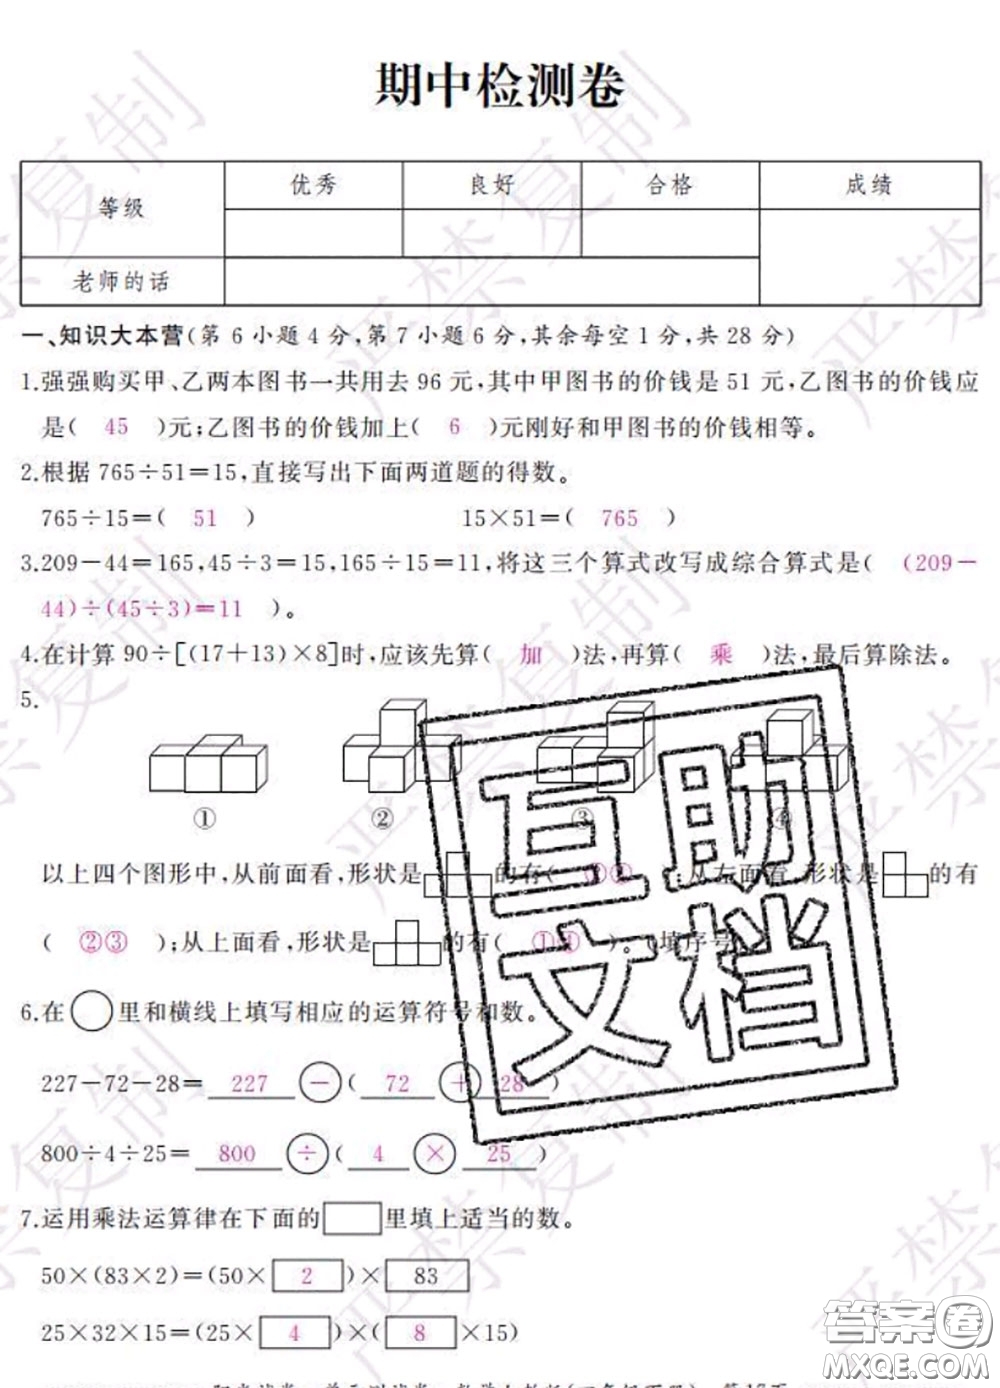 期中检测卷
等级 优秀 良好 合格 成绩
老师的话
一、知识大本营(第 6 小题 4 分,第 7 小题 6 分,其余每空 1 分,共 28 分)
1.强强购买甲、乙两本图书一共用去 96 元,其中甲图书的价钱是 51 元,乙图书的价钱应
是( 45 )元;乙图书的价钱加上( 6 )元刚好和甲图书的价钱相等。
2.根据 765÷51=15,直接写出下面两道题的得数。
765÷15=( 51 ) 15×51=( 765 )
3.209-44=165,45÷3=15,165÷15=11,将这三个算式改写成综合算式是( (209-
44)÷(45÷3)=11 )。
4.在计算 90÷[(17+13)×8]时,应该先算( 加 )法,再算( 乘 )法,最后算除法。
5.
① ② ③ ④
以上四个图形中,从前面看,形状是 的有( );从左面看,形状是 的有
( ②③ );从上面看,形状是 的有( ①④ )。(填序号)
6.在 里和横线上填写相应的运算符号和数。
227-72-28= 227 - ( 72 + 28 )
800÷4÷25= 800 ÷ ( 4 × 25 )
7.运用乘法运算律在下面的 里填上适当的数。
50×(83×2)=(50× 2 )× 83
25×32×15=(25× 4 )×( 8 ×15)
严禁复制
严禁复制
严禁复制
互助
文档
答案圈
MXQE.COM